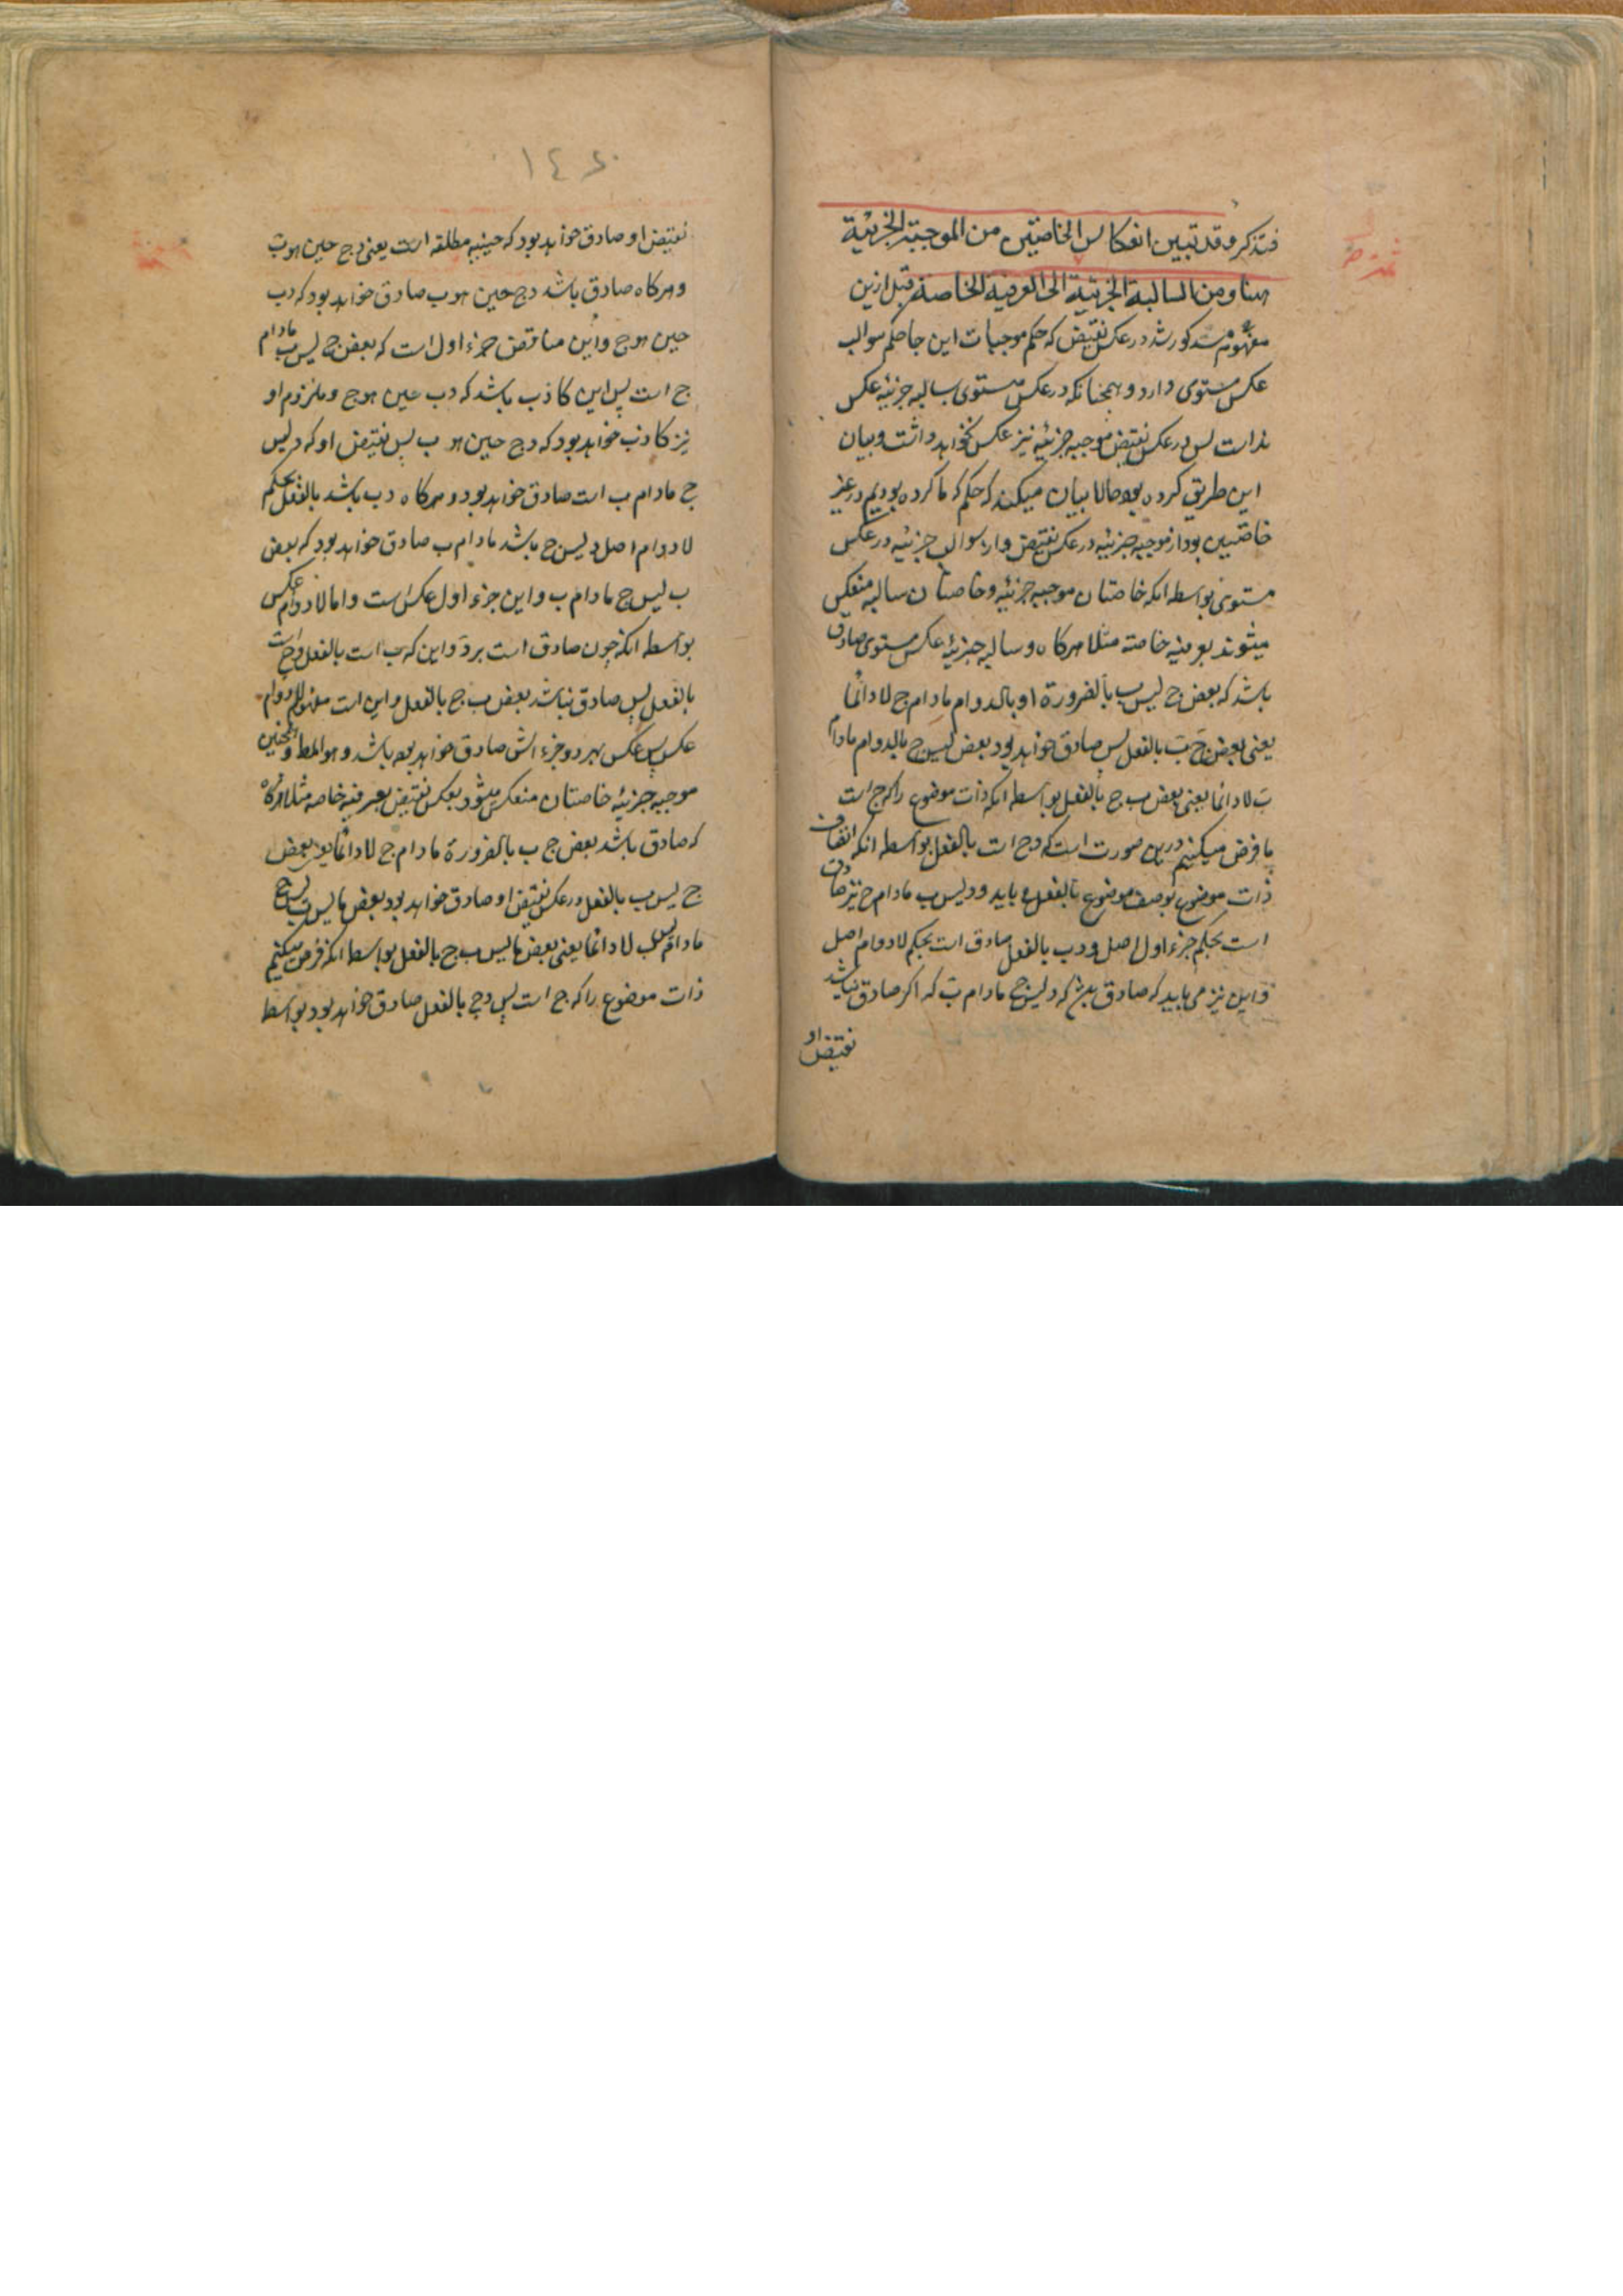 فتذکر وقد تبین انعکاس الخاصتین من الموجبة الجزئیة
هنا ومن السالبة الجزئیة الی العرفیة الخاصة قبل ازین
مذکور شد در عکس نقیض که حکم موجبات این جا حکم سوالب
عکس مستوی دارد و همچنانکه در عکس مستوی سالبه جزئیه عکس
نداشت پس در عکس نقیض موجبه جزئیه نیز عکس نخواهد داشت و بیان
این طریق کرده بود حالا بیان میکند که حکم که ما کرده بودیم در غیر
خاصتین بود از موجبه جزئیه در عکس نقیض و از سوالب جزئیه در عکس
مستوی بواسطه انکه خاصتان موجبه جزئیه و خاصتان سالبه منعکس
میشوند بعرفیه خاصه مثلا هرکاه و سالبه جزئیه عکس مستوی صادق
باشد که بعض ج لیس ب بالضرورة او بالدوام مادام ج لا دائما
یعنی بعض ج ب بالفعل پس صادق خواهد بود بعض لیس ج بالدوام مادام
ب لا دائما یعنی بعض ب ج بالفعل بواسطه انکه ذات موضوع را که ج است
ما فرض میکنیم درین صورت است که د ج است بالفعل بواسطه انکه اتصاف
ذات موضوع بوصف موضوع بالفعل می باید و د لیس ب مادام ج نیز صادق
است بحکم جزء اول اصل و د ب بالفعل صادق است بحکم لا دوام اصل
و این نیز می باید که صادق باشد که د لیس ج مادام ب که اگر صادق نباشد
نقیض او
١٤
نقیض او صادق خواهد بود که حینیه مطلقه است یعنی د ج حین هو ب
و هرکاه صادق باشد د ج حین هو ب صادق خواهد بود که د ب
حین هو ج و این مناقض جزء اول است که بعض ج لیس ب مادام
ج است پس این کاذب باشد که د ب حین هو ج و ملزوم او
نیز کاذب خواهد بود که د ج حین هو ب پس نقیض او که د لیس
ج مادام ب است صادق خواهد بود و هرکاه د ب باشد بالفعل بحکم
لا دوام اصل و لیس ج باشد مادام ب صادق خواهد بود که بعض
ب لیس ج مادام ب و این جزء اول عکس است و اما لا دوام عکس
بواسطه انکه چون صادق است بر د و این که ب است بالفعل و ج است
بالفعل پس صادق باشد بعض ب ج بالفعل و این است مفهوم لا دوام
عکس پس عکس بهر دو جزء اش صادق خواهد بود باشد و هو المط و همچنین
موجبه جزئیه خاصتان منعکس میشود بعکس نقیض بعرفیه خاصه مثلا هرکاه
که صادق باشد بعض ج ب بالضرورة مادام ج لا دائما یعنی بعض
ج لیس ب بالفعل در عکس نقیض او صادق خواهد بود بعض ما لیس ب لیس ج
مادام لیس ب لا دائما یعنی بعض ما لیس ب ج بالفعل بواسطه انکه فرض میکنیم
ذات موضوع را که ج است پس د ج بالفعل صادق خواهد بود بواسطه